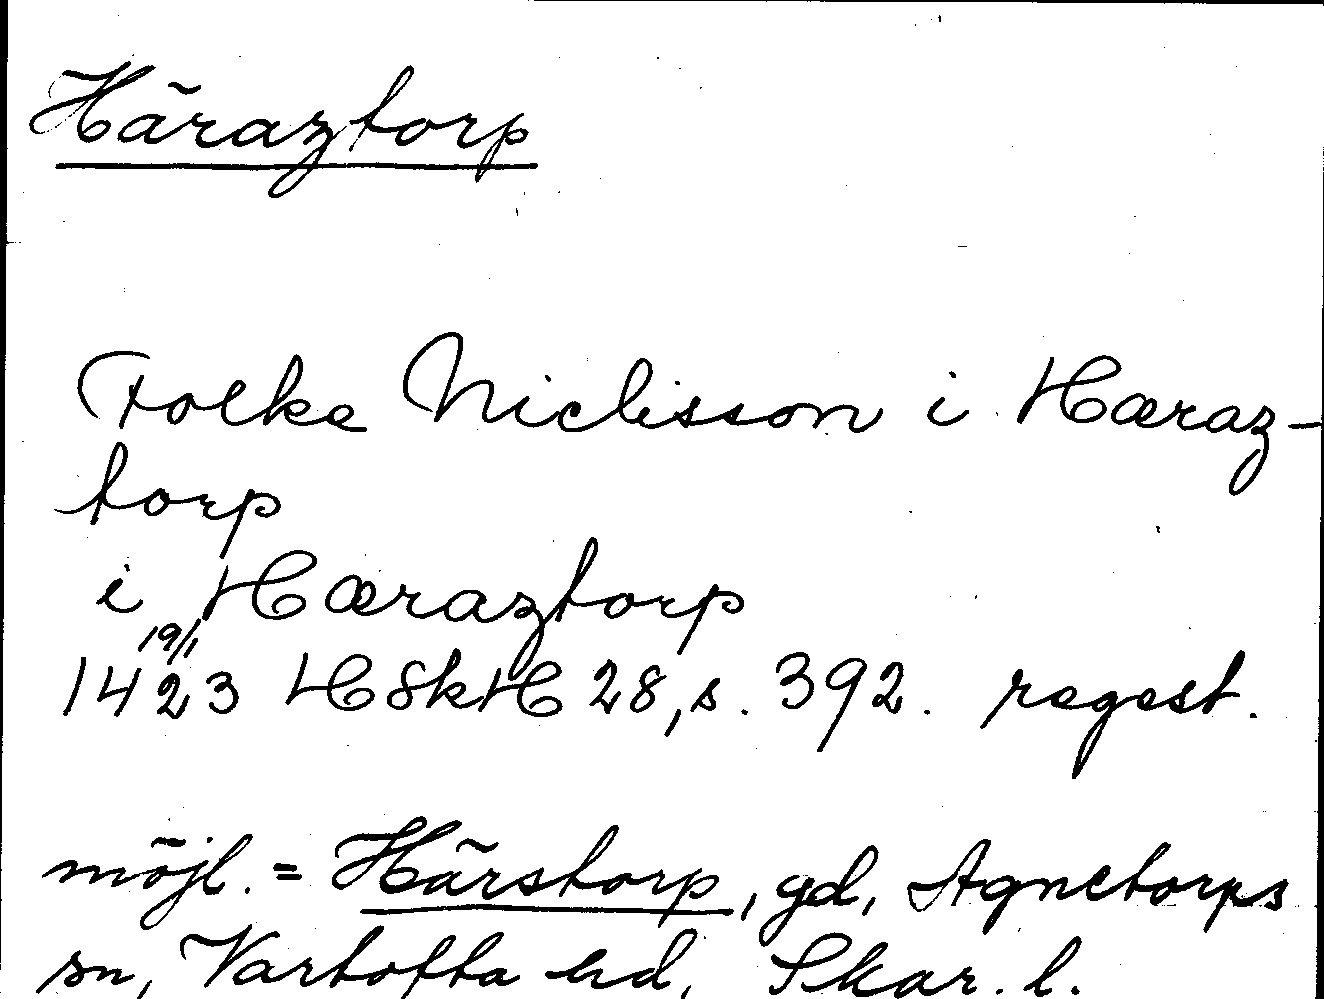 Häraztorp
Folke Niclisson i Hæraz-
torp
i Hæraztorp
19/1
1423 HSkH 28, s. 392. regest.
möjl. = Härstorp, gd, Agnetorps
sn, Vartofta hd, Skar. l.